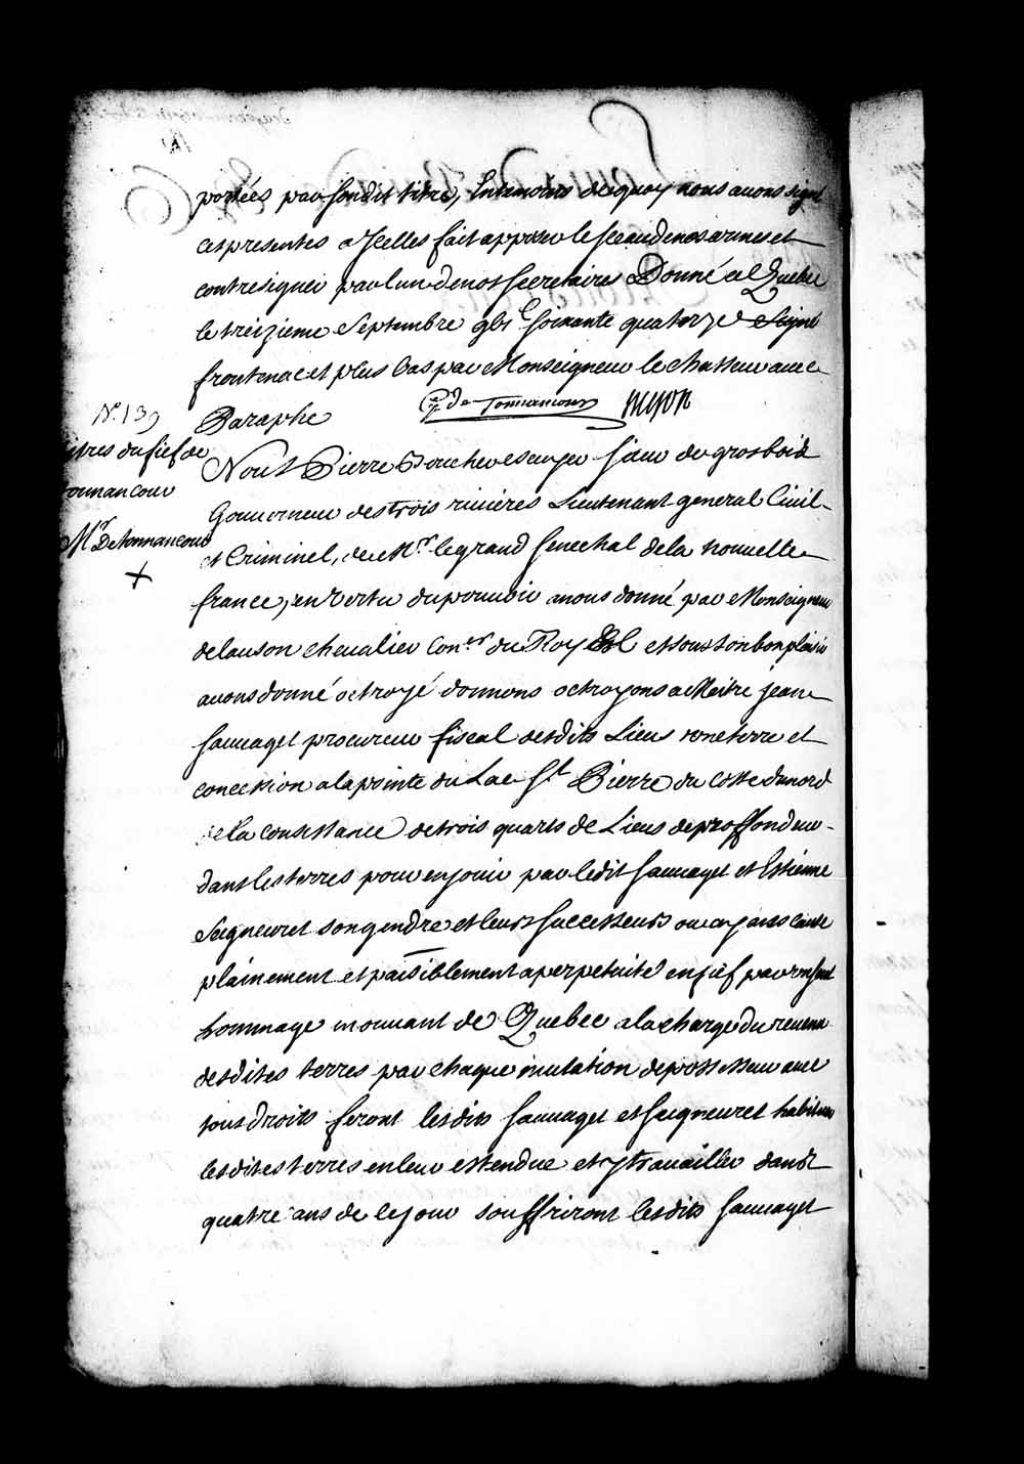 portées par sondit titre, Entemoins dequoy nous avons signé
ces presentes a Jcelles fait apposer le sceau denos armes et
contresigner par lun denos secretaires Donné a Quebec
le treizieme Septembre gbic soixante quatorze Signé
frontenac et plus bas par Monseigneur le chasseur avec
Paraphe
de Tonnancour
N.° 139
itres du fief de
onnancour
Mr De tonnancour
Nous Pierre Boucher escuyer sieur de grosbois
Gouverneur des trois rivieres Lieutenant general Civil
et Criminel, de Mr. le grand senechal dela nouvelle
france, en Vertu du pouvoir anous donné par Monseigneur
delauson chevalier Coner du Roy et sous son bon plaisir
avons donné octroyé donnons octroyons a Maitre jean
sauvaget procureur fiscal desdits Lieus une terre et
concession a la pointe du Lac St Pierre du costé du nord
de la consistance de trois quarts de Lieus de proffondeur
dans les terres pour en jouir par ledit sauvaget et Estienne
Seigneuret son gendre et leurs successeurs ou ayans cause
plainement et paisiblement a perpetuité en fief par un seul
hommage mouvant de Quebec a la charge du revenu
desdites terres par chaque mutation de possesseur avec
tous droits feront lesdits sauvaget et seigneuret habituer
lesdites terres en leur estendue et y travailler dans
quatre ans de ce jour souffriront lesdits sauvaget